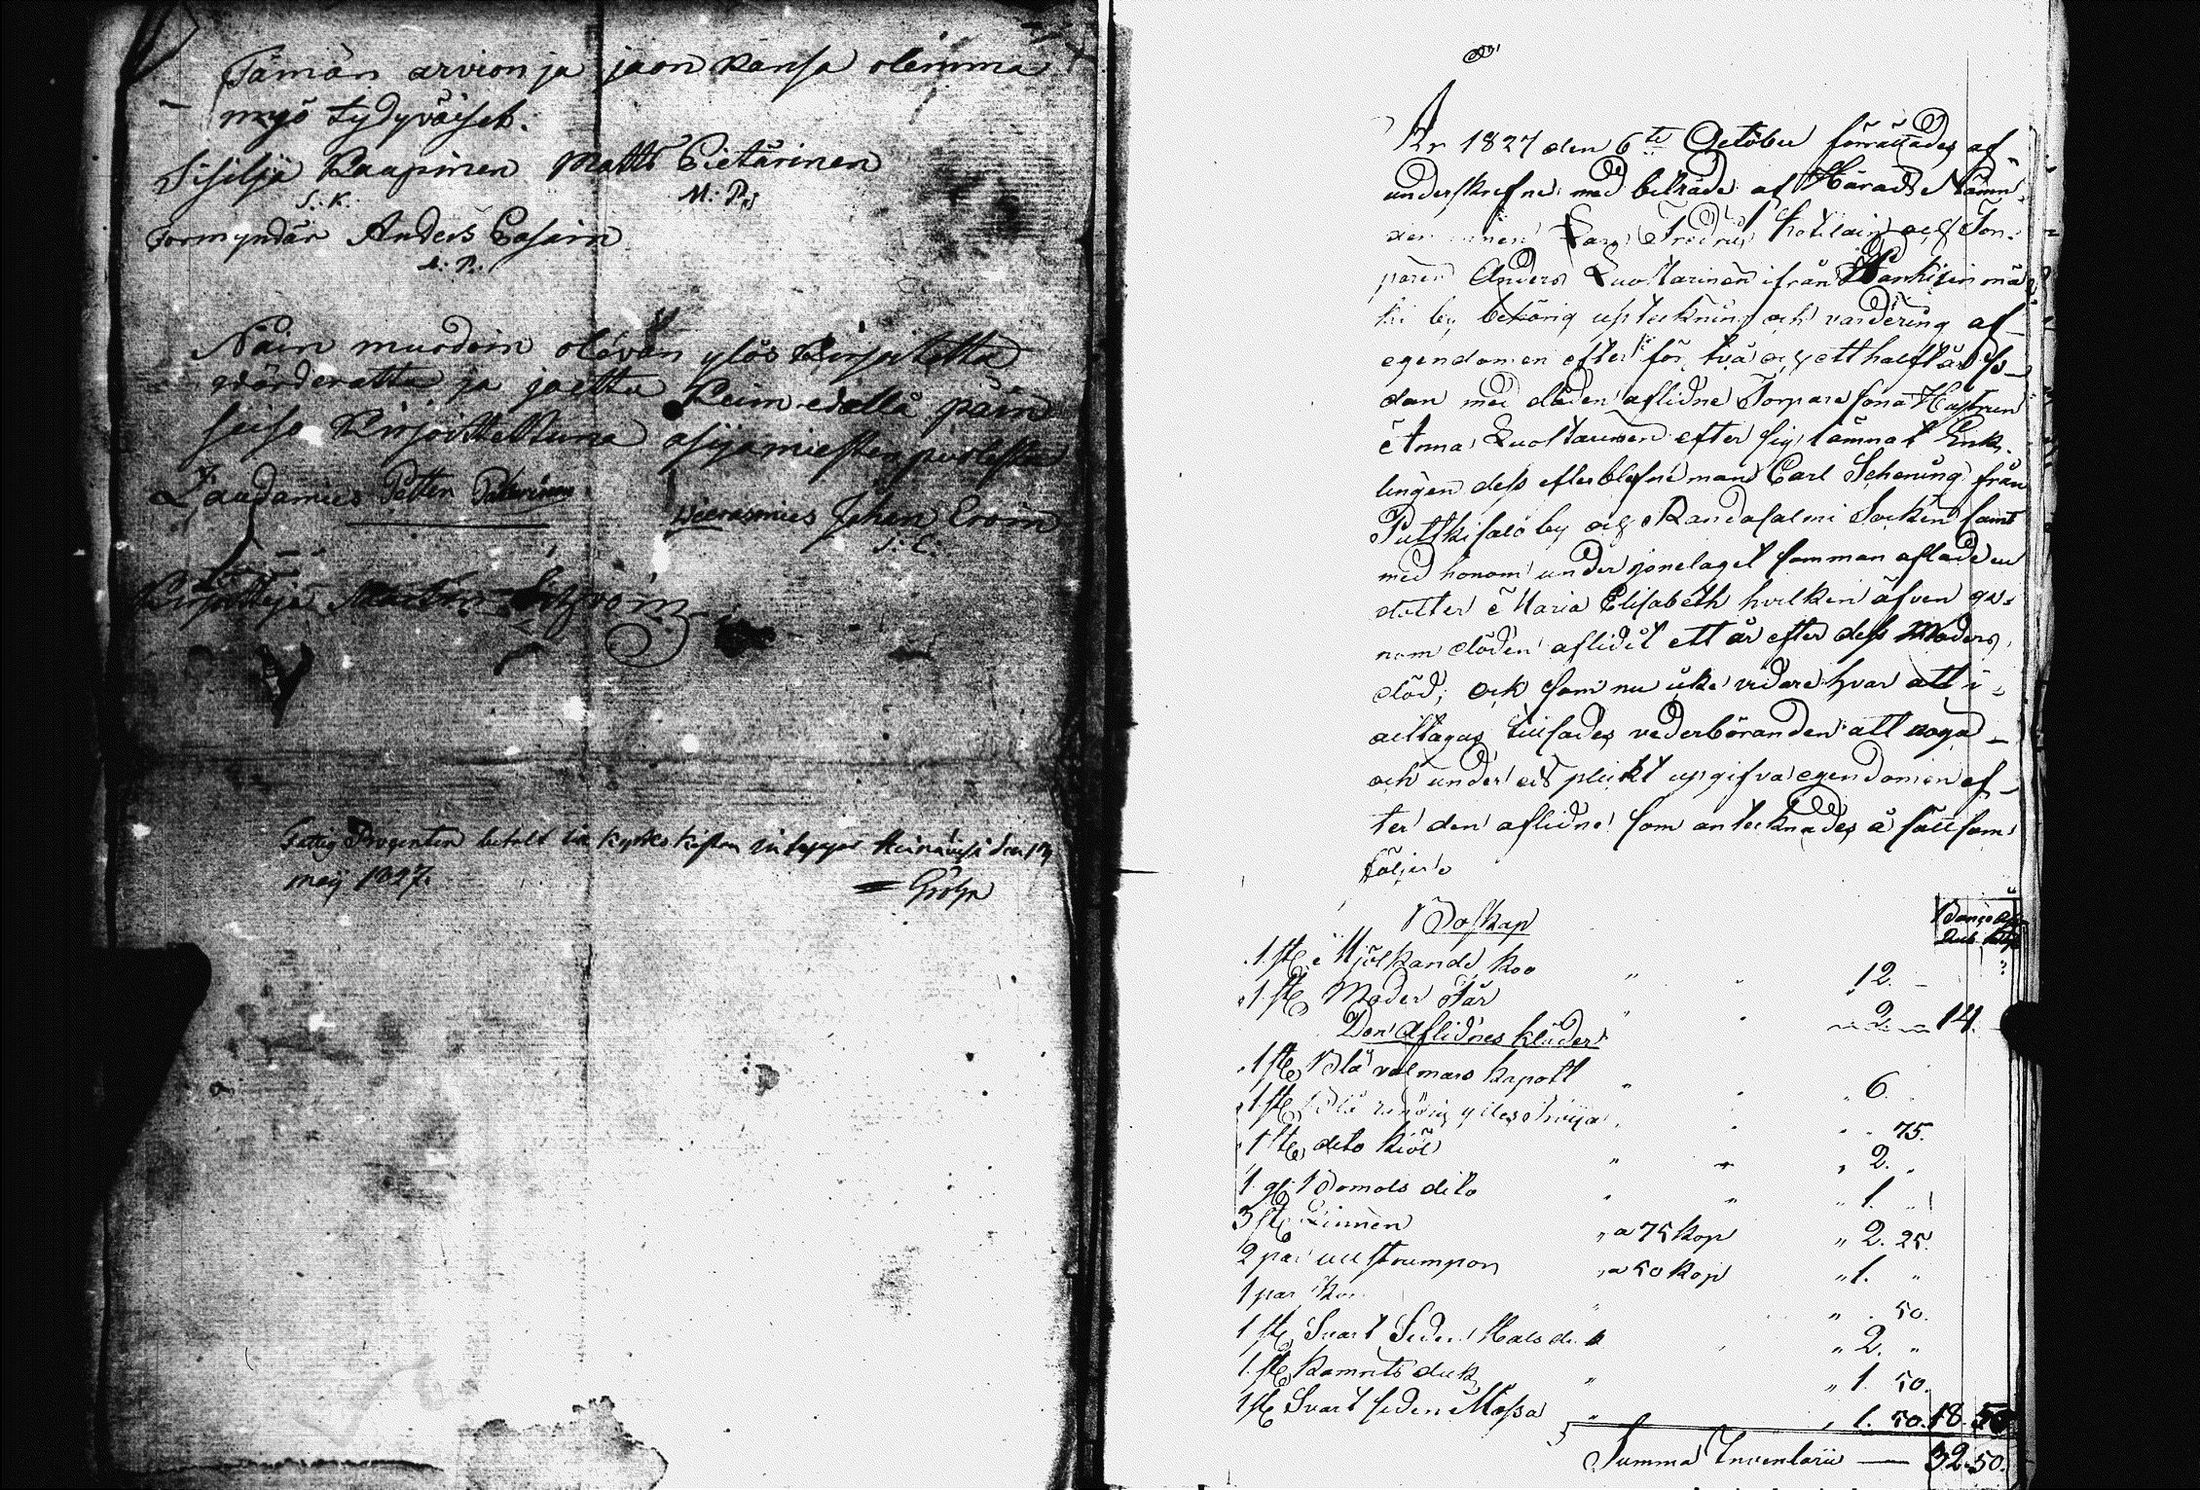 Tämän arvion ja jaon kansa olemma
myö tydyväiset.
Sisilja Kaapinen Matts Pietarinen
S. K. M: P.
Formyndär Anders Pasain
A: P.
Näin muodoin olévan ylös kirjutettu
wärderattu ja jaettu Kuin edellä päin
seiso kirjoitettuna asijamiesten puolesta
Laudamies Petter
Johan
Martin
Fattig Procenten betalt
maij 1827.
År 1827 den 6te October förrättades af
underskrefne med beträde af Härads Nämn-
Fredric och Tor-
paren Anders Luostarinen ifrån
ki by behörig upteckning och värdering af
egendomen efter för två och ett halft år se-
dan med döden aflidne Torpare sona Hustrun
Anna Luostarinen efter sig lämnat Enk-
lingen dess efterblefne man Carl Schering från
Putkisalo by och Randasalmi Socken samt
med honom under ägtenskapet samman aflade en
dotter Maria Elisabeth hvilken äfven ge-
nom döden aflidit ett år efter dess Moders
död; och som nu icke vidare hvar att i-
akttagas tillsades vederböranden att noga
och under eds plickt upgifva egendomen ef-
ter den aflidne som antecknades å sätt som
följer
Boskap
1 st. Mjölkande koo " " 12. -
1 st. Moder Får " " 2. 14.
Den Aflidnes kläder
1 st. Blå valmars kapott " " 6.
1 st. Blå randig " 75.
1 st. dito kiol " " 2. "
1 st. Bomols dito " " 1. "
3 st. Linnen " a 75 kop " 2. 25.
2 par ull strumpor " a 50 kop " 1. "
1 par " " 50.
1 st. Svart Siden Halsduk " 2. "
1 st. kamrits duk " " 1. 50.
1 st. Svart siden Mössa " " 1. 50. 18. 50
Summa Inventarii — 32. 50.